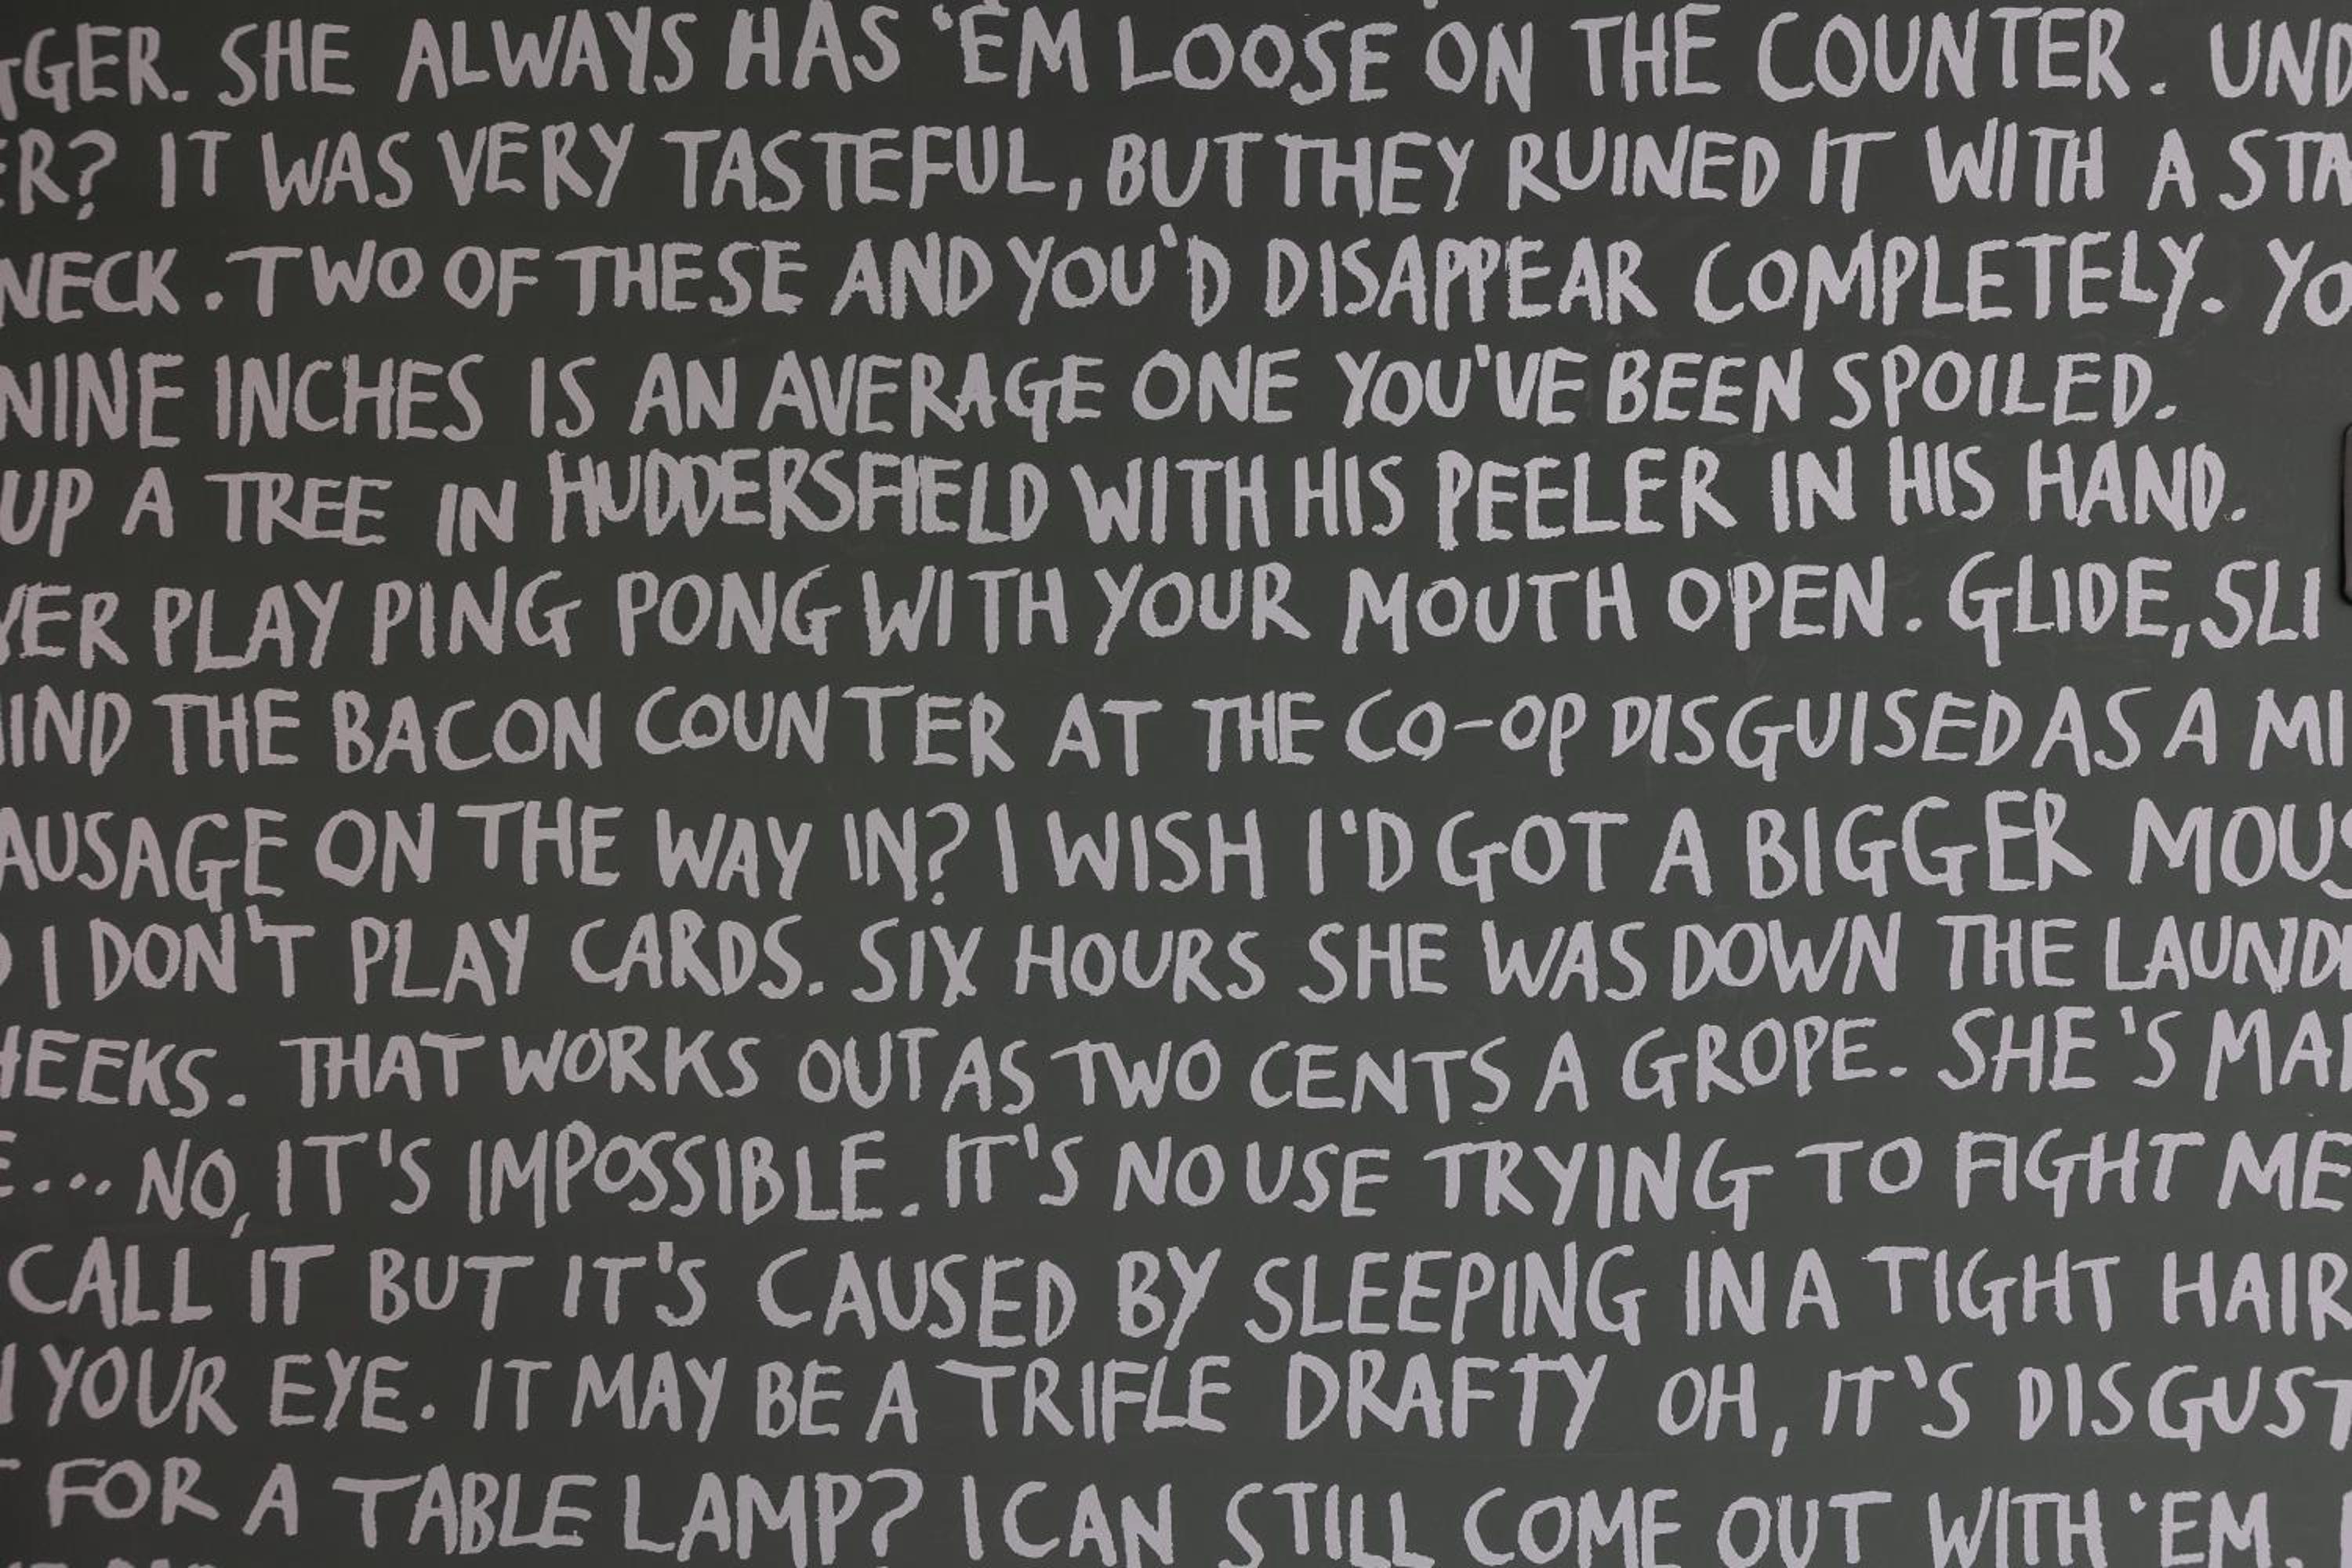 GER. SHE ALWAYS HAS 'EM LOOSE ON THE COUNTER. UND
ER? IT WAS VERY TASTEFUL, BUT THEY RUINED IT WITH A STA
NECK. TWO OF THESE AND YOU'D DISAPPEAR COMPLETELY. YO
NINE INCHES IS AN AVERAGE ONE YOU'VE BEEN SPOILED.
UP A TREE IN HUDDERSFIELD WITH HIS PEELER IN HIS HAND.
VER PLAY PING PONG WITH YOUR MOUTH OPEN. GLIDE, SLI
IND THE BACON COUNTER AT THE CO-OP DISGUISED AS A MI
AUSAGE ON THE WAY IN? I WISH I'D GOT A BIGGER MOUS
I DON'T PLAY CARDS. SIX HOURS SHE WAS DOWN THE LAUND
HEEKS. THAT WORKS OUT AS TWO CENTS A GROPE. SHE'S MA
E... NO, IT'S IMPOSSIBLE. IT'S NO USE TRYING TO FIGHT ME
CALL IT BUT IT'S CAUSED BY SLEEPING IN A TIGHT HAIR
YOUR EYE. IT MAY BE A TRIFLE DRAFTY OH, IT'S DISGUST
FOR A TABLE LAMP? I CAN STILL COME OUT WITH 'EM.